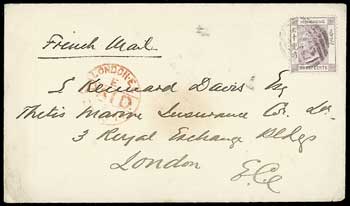 French Mail
LONDON·E
PAID
S Kennard Davis Esq
Thetis Marine Insurance Co. Ld.
3 Royal Exchange Bldgs
London
E.C.